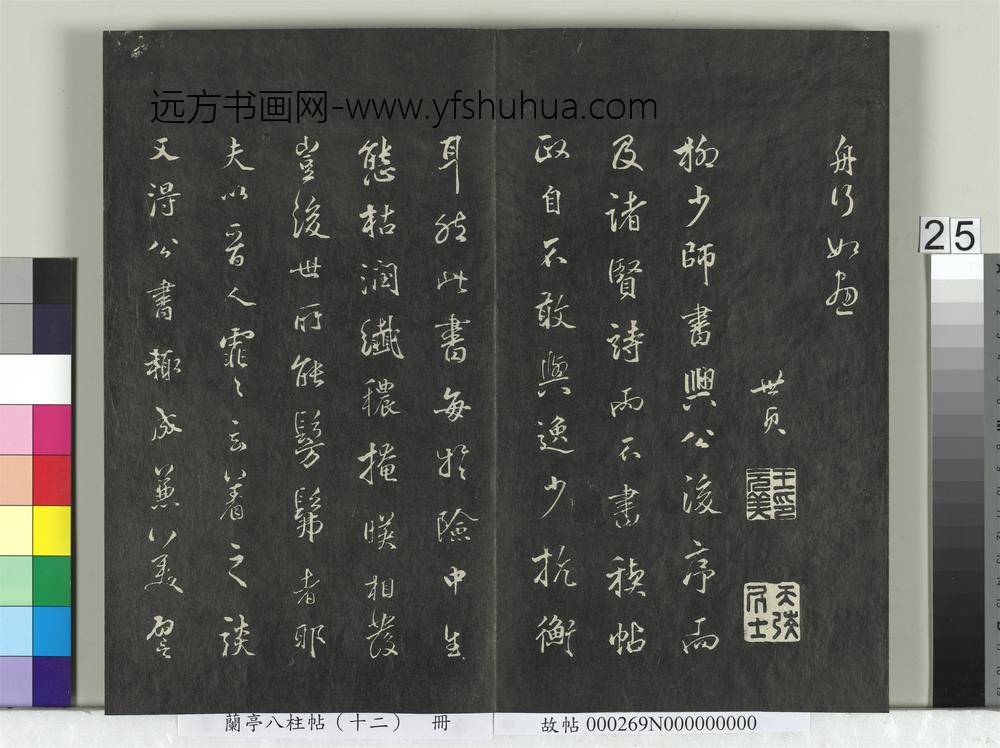 远方书画网-www.yfshuhua.com
舟行如画
世貞
王氏元美
天弢居士
柳少師書興公後序而
及諸賢詩而不書禊帖
政自不敢與逸少抗衡
耳然此書每於險中生
態枯潤纖穠掩暎相發
豈後世所能髣髴者耶
夫以晉人霏霏玄著之談
又得公書輒成兼美
25
蘭亭八柱帖（十二） 冊
故帖 000269N000000000